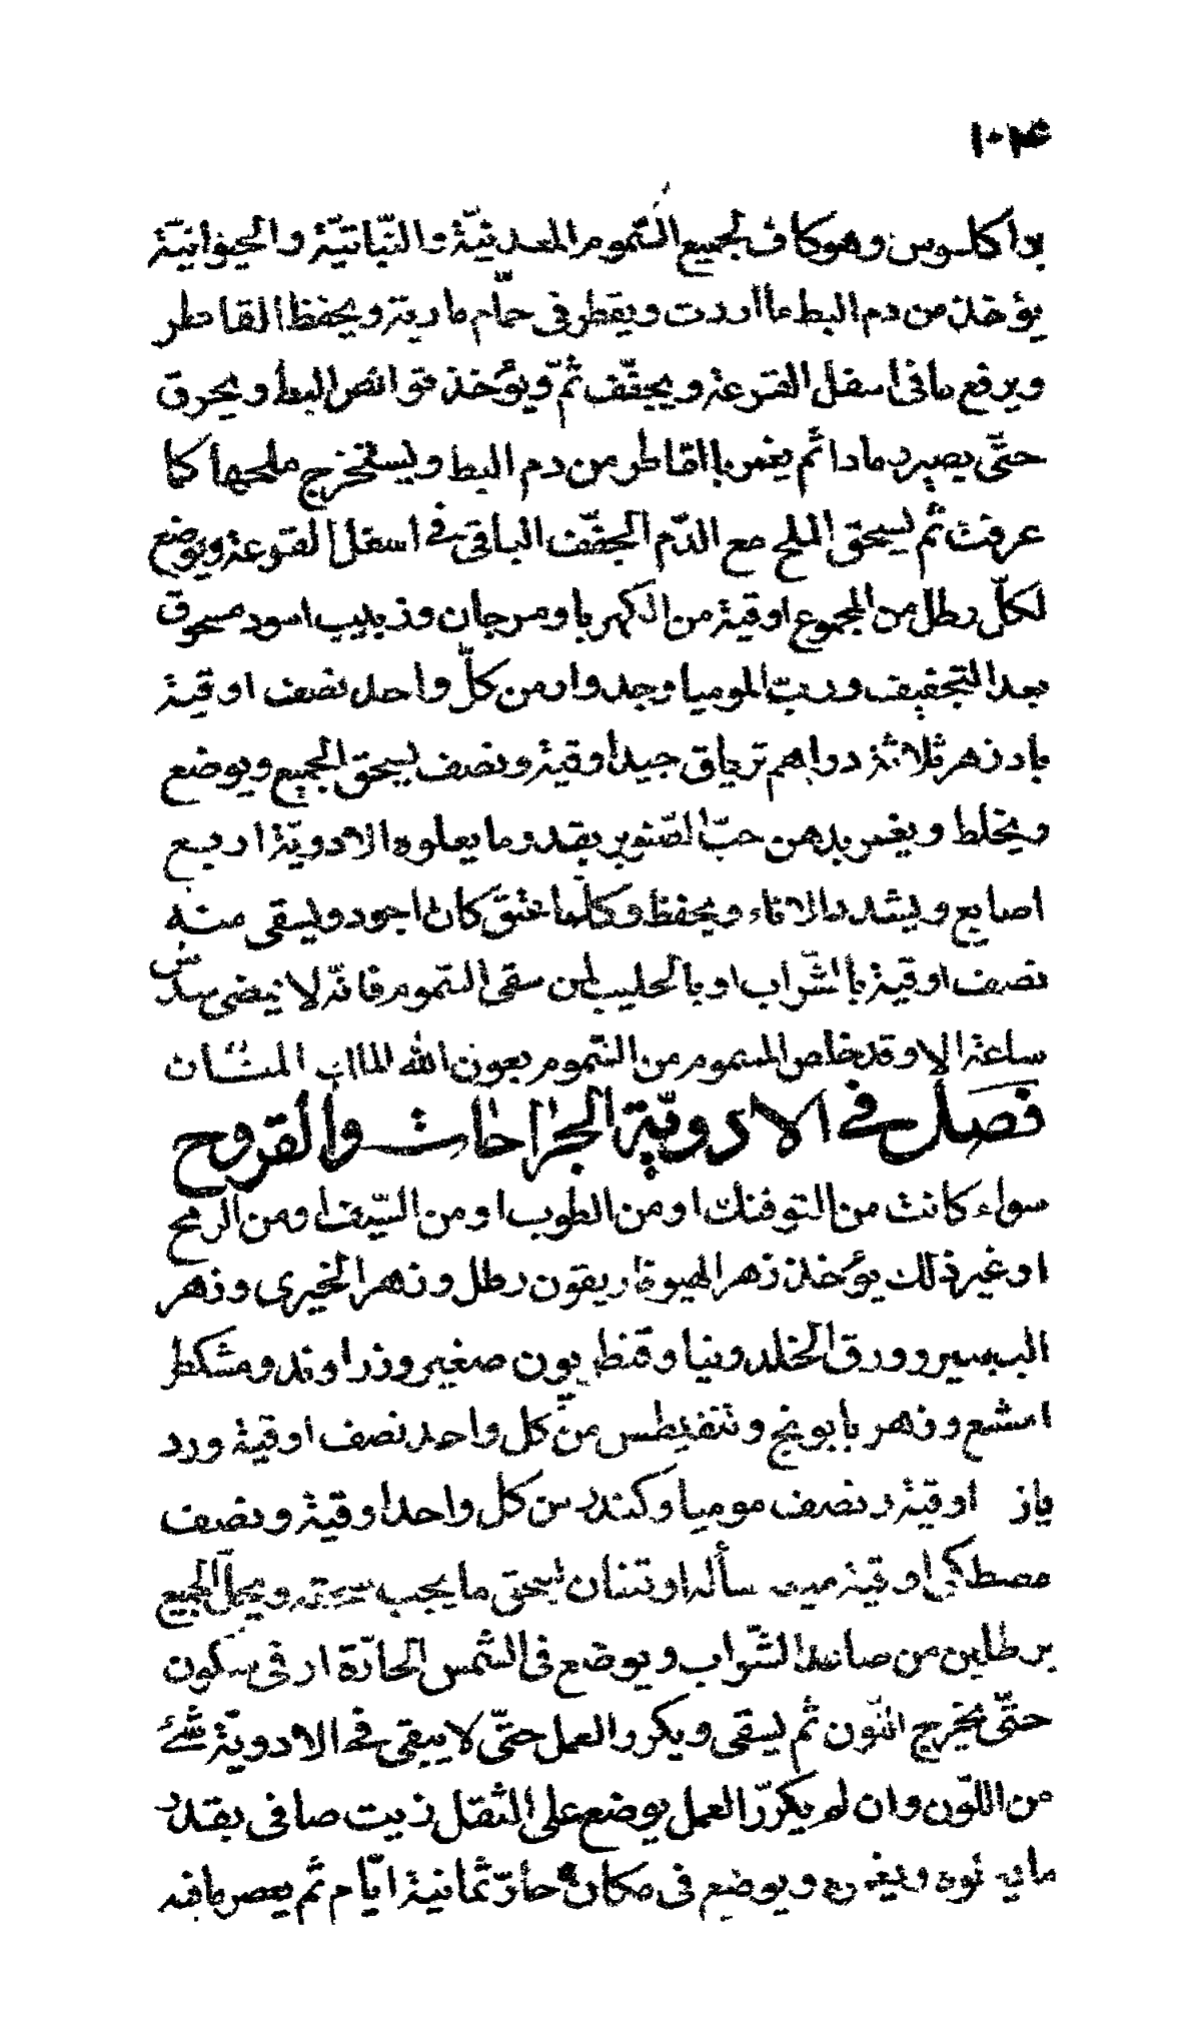 ١٠٢۴
براكلوس وهو كاف لجميع السّموم المعدنيّة والنّباتيّة والحيوانيّة
يؤخذ من دم البط ما اردت ويقطر في حمّام مارية ويحفظ القاطر
ويرفع ما في اسفل القرعة ويجفّف ثمّ ويؤخذ قوانص البط ويحرق
حتّى يصير رمادا ثم يغمر بالقاطر من دم البط ويستخرج ملحها كما
عرفت ثم يسحق الملح مع الدّم المجفّف الباقي في اسفل القرعة ويوضع
لكلّ رطل من المجموع اوقية من الكهربا ومرجان وزبيب اسود مسحوق
بعد التجفيف وربّ الموميا وجدوار من كلّ واحد نصف اوقية
بادزهر ثلاثة دراهم ترياق جيد اوقية ونصف يسحق الجميع ويوضع
ويخلط ويغمر بدهن حبّ الصّنوبر بقدر ما يعلوه الادويّة اربع
اصابع ويشد الاناء ويحفظ وكلّما عتق كان اجود ويسقى منه
نصف اوقية بالشّراب او بالحليب لمن سقى السّموم فانّه لا يمضى سدس
ساعة الا وقد خلص المسموم من السّموم بعون الله المنّان
فصل في الادويّة الجراحات والقروح
سواء كانت من التوفنك او من الطوب او من السّيف او من الرمح
او غير ذلك يؤخذ زهر الهيوفاريقون رطل وزهر الخيرى وزهر
البسير وورق الخلدونيا وقنطريون صغير وزراوند ومشكطر
امشع وزهر بابونج وتنفيطس من كل واحد نصف اوقية ورد
ياز اوقية ونصف موميا وكندر من كل واحد اوقية ونصف
مصطكى اوقية ميعه سائله اوقتنان يسحق ما يجب سحقه ويحلّ الجميع
برطلين من صاعد الشّراب ويوضع في الشمس الحارّة او في سكون
حتّى يخرج اللّون ثم يسقى ويكرر العمل حتّى لا يبقى في الادويّة شئ
من اللّون وان لم يكرّر العمل يوضع على الثقل زيت صافى بقدر
ما ويوضع في مكان حارّ ثمانية ايّام ثم يعصر ما فيه